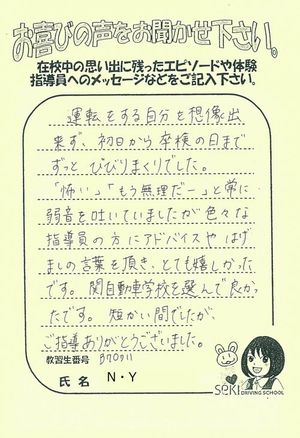 お喜びの声をお聞かせ下さい。
在校中の思い出に残ったエピソードや体験
指導員へのメッセージなどをご記入下さい。
運転をする自分を想像出
来ず、初日から卒検の日まで
ずっとびびりまくりでした。
「怖い」「もう無理だー」と常に
弱音を吐いていましたが色々な
指導員の方にアドバイスやはげ
ましの言葉を頂き、とても嬉しかった
です。関自動車学校を選んで良かっ
たです。短かい間でしたが、
ご指導ありがとうございました。
教習生番号 B70911
氏名 N・Y
SEKI DRIVING SCHOOL